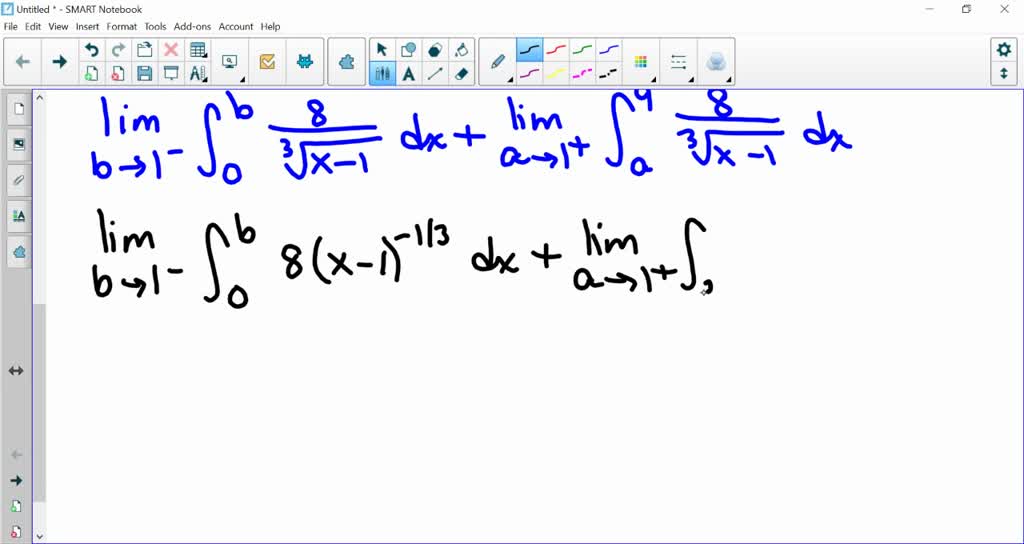 Untitled * - SMART Notebook
File Edit View Insert Format Tools Add-ons Account Help
lim b→1⁻ ∫₀ᵇ 8/∛(x-1) dx + lim a→1⁺ ∫ₐ⁹ 8/∛(x-1) dx
lim b→1⁻ ∫₀ᵇ 8(x-1)^(-1/3) dx + lim a→1⁺ ∫